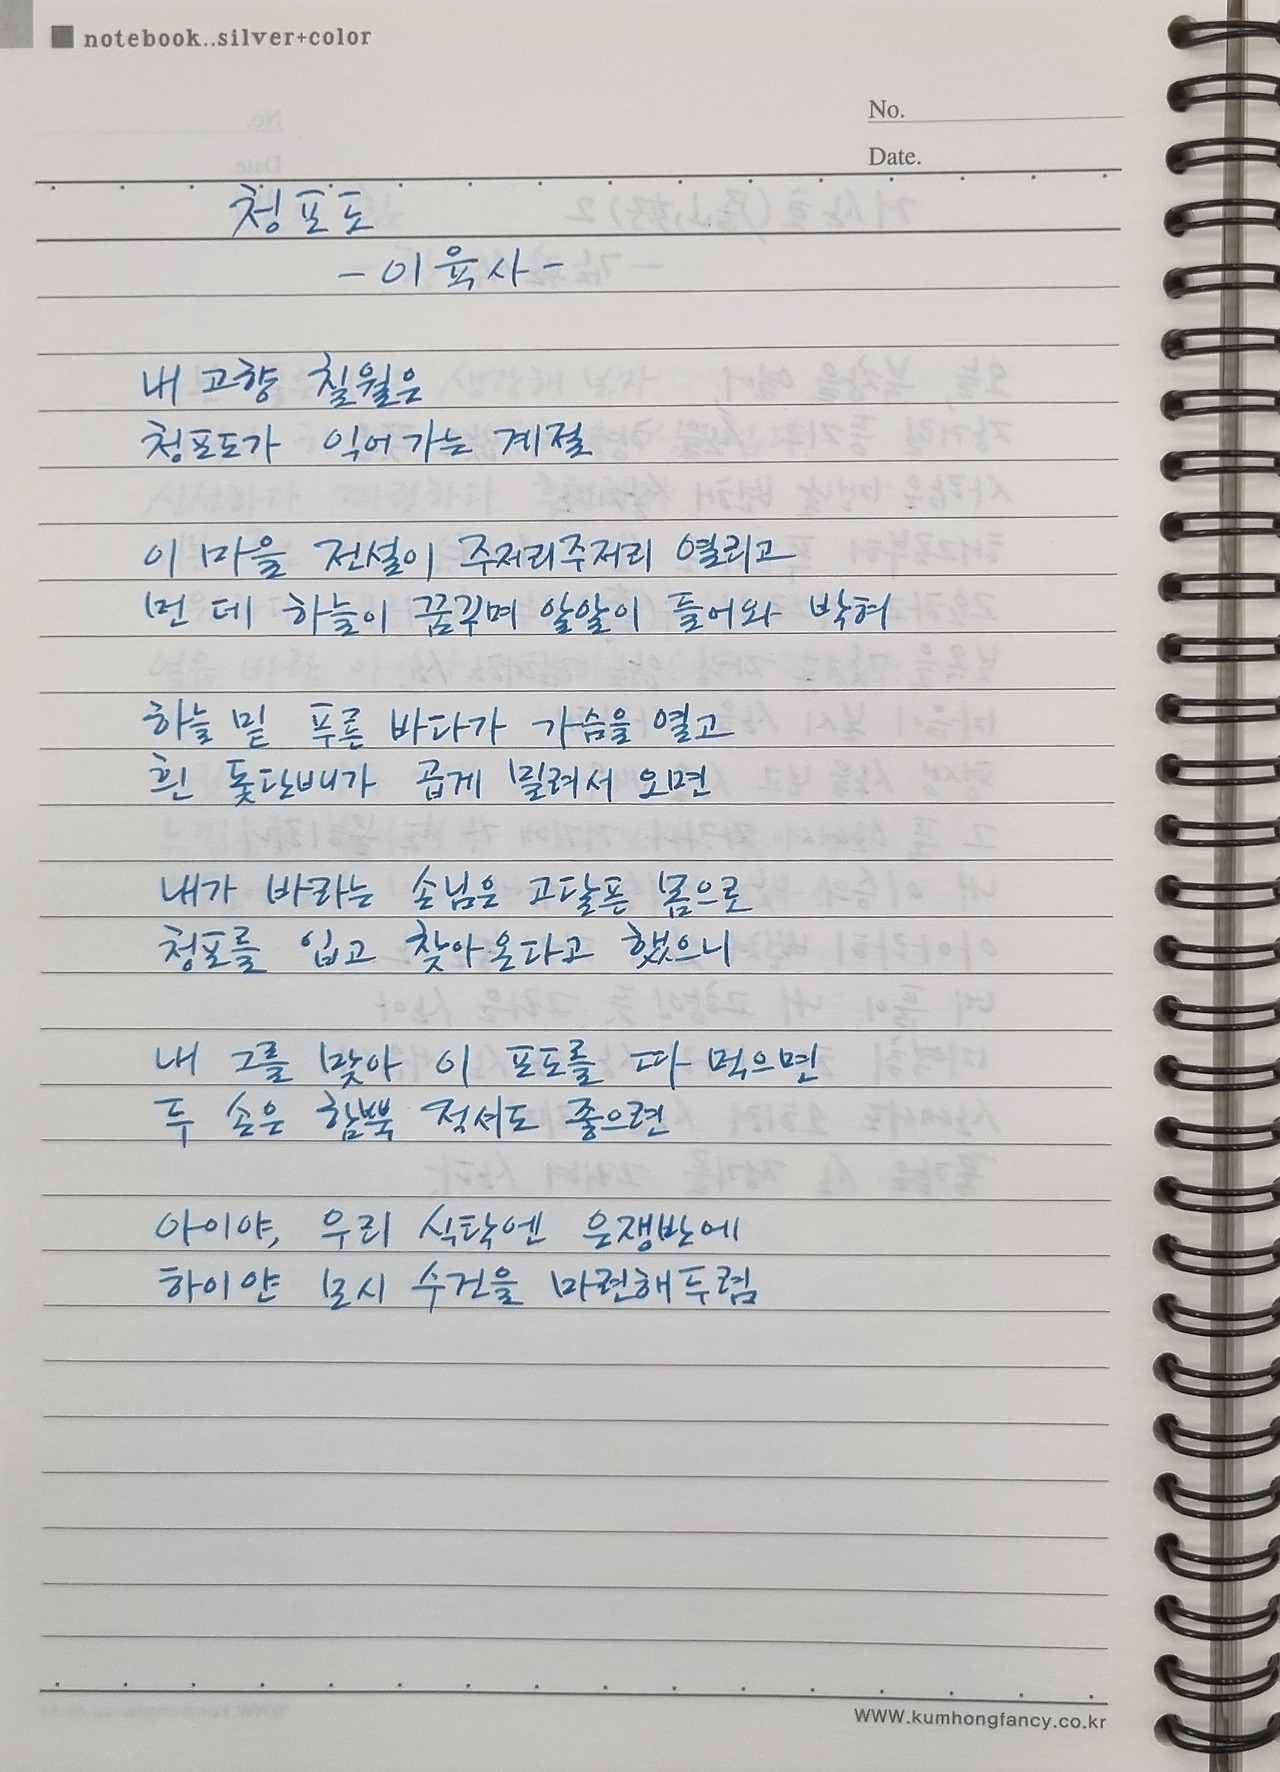 notebook..silver+color
No.
Date.
청포도
-이육사-
내 고향 칠월은
청포도가 익어가는 계절
이 마을 전설이 주저리주저리 열리고
먼 데 하늘이 꿈꾸며 알알이 들어와 박혀
하늘 밑 푸른 바다가 가슴을 열고
흰 돛단배가 곱게 밀려서 오면
내가 바라는 손님은 고달픈 몸으로
청포를 입고 찾아온다고 했으니
내 그를 맞아 이 포도를 따 먹으면
두 손은 함뿍 적셔도 좋으련
아이야, 우리 식탁엔 은쟁반에
하이얀 모시 수건을 마련해두렴
WWW.kumhongfancy.co.kr